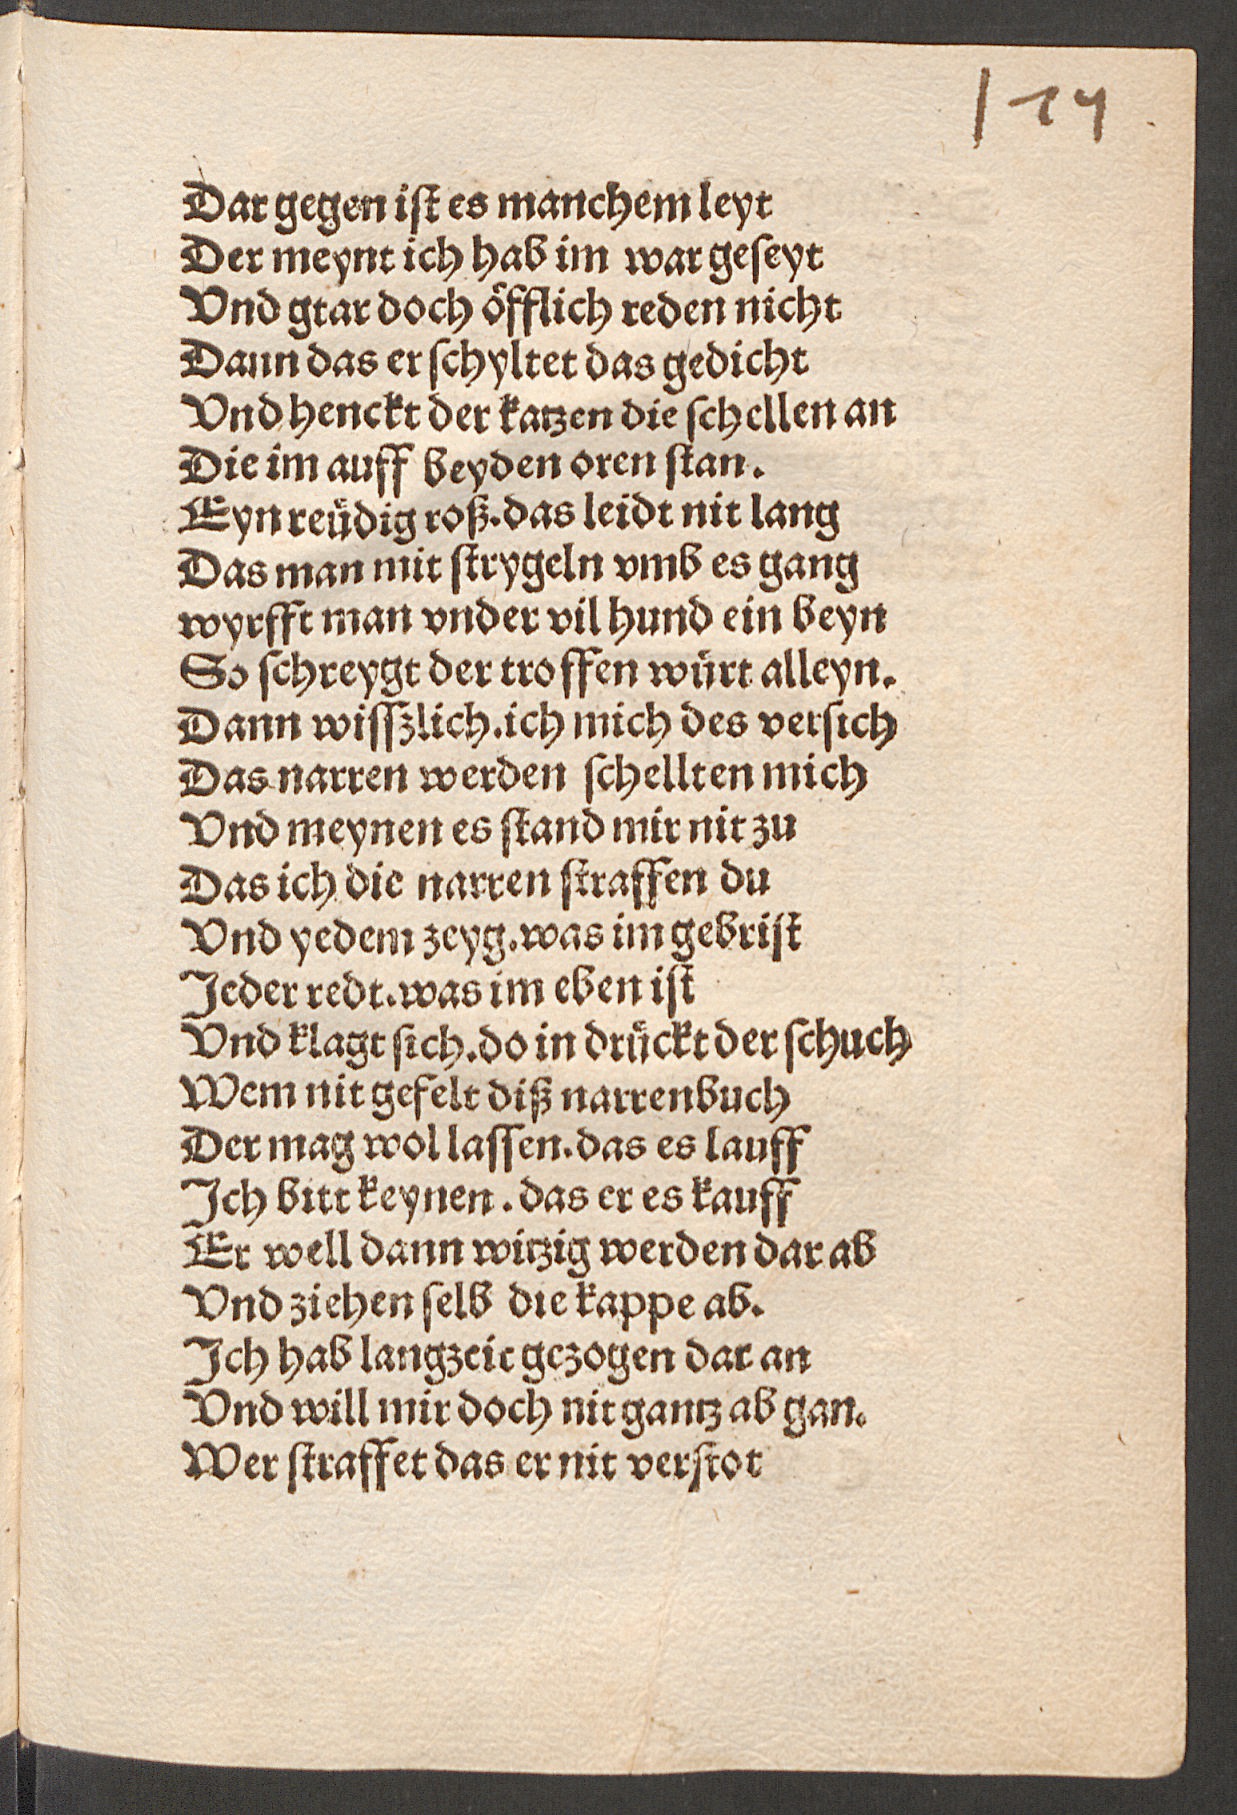 114
Dar gegen iſt es manchem leyt
Der meynt ich hab im war geſeyt
Vnd gtar doch oͤfflich reden nicht
Dann das er ſchyltet das gedicht
Vnd henckt der katzen die ſchellen an
Die im auff beyden oren ſtan.
Eyn reüdig roß. das leidt nit lang
Das man mit ſtrygeln vmb es gang
wyrfft man vnder vil hund ein beyn
So ſchreygt der troffen würt alleyn.
Dann wiſſzlich. ich mich des verſich
Das narren werden ſchellten mich
Vnd meynen es ſtand mir nit zu
Das ich die narren ſtraffen du
Vnd yedem zeyg. was im gebriſt
Jeder redt. was im eben iſt
Vnd klagt ſich. do in drückt der ſchuch
Wem nit gefelt diß narrenbuch
Der mag wol laſſen. das es lauff
Ich bitt keynen. das er es kauff
Er well dann witzig werden dar ab
Vnd ziehen ſelb die kappe ab.
Ich hab langzeit gezogen dar an
Vnd will mir doch nit gantz ab gan.
Wer ſtraffet das er nit verſtot